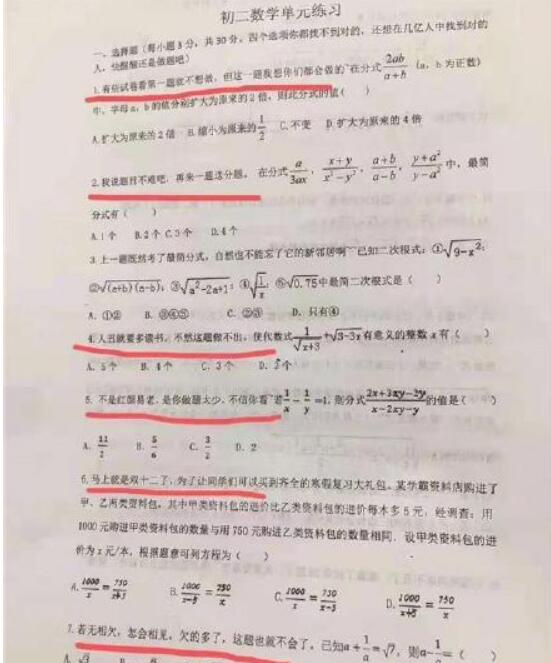 初二数学单元练习
一、选择题（每小题3分，共30分，四个选项你都找不到对的，还想在几亿人中找到对的
人，快醒醒还是做题吧）
1.有些试卷看第一题就不想做，但这一题我想你们都会做的~在分式 2ab/(a+b) （a，b为正数）
中，字母a，b的值分别扩大为原来的2倍，则此分式的值（ ）
A.扩大为原来的2倍 B.缩小为原来的1/2 C.不变 D.扩大为原来的4倍
2.我说题目不难吧，再来一题送分题。在分式 a/3ax，(x+y)/(x²-y²)，(a+b)/(a-b)，(y+a²)/(y-a²) 中，最简
分式有（ ）
A.1个 B.2个 C.3个 D.4个
3.上一题既然考了最简分式，自然也不能忘了它的新邻居啊~已知二次根式：①√(9-x²)；
②√((a+b)(a-b))；③√(a²-2a+1)；④√(1/x)；⑤√0.75中最简二次根式是（ ）
A.①② B.③④⑤ C.②③ D.只有④
4.人丑就要多读书，不然这题做不出，使代数式 1/√(x+3)+√(3-3x) 有意义的整数x有（ ）
A.5个 B.4个 C.3个 D.2个
5.不是红颜易老，是你做题太少，不信你看~若 1/x-1/y=1，则分式 (2x+3xy-2y)/(x-2xy-y) 的值是（ ）
A. 11/2 B. 5/6 C. 3/2 D. 2
6.马上就是双十二了，为了让同学们可以买到齐全的寒假复习大礼包，某学霸资料店购进了
甲、乙两类资料包，其中甲类资料包的进价比乙类资料包的进价每本多5元，经调查：用
1000元购进甲类资料包的数量与用750元购进乙类资料包的数量相同，设甲类资料包的进
价为x元/本，根据题意可列方程为（ ）
A. 1000/x=750/(x+5) B. 1000/(x-5)=750/x C. 1000/x=750/(x-5) D. 1000/(x+5)=750/x
7.若无相欠，怎会相见，欠的多了，这题也就不会了，已知a+1/a=√7，则a-1/a=（ ）
A. √3